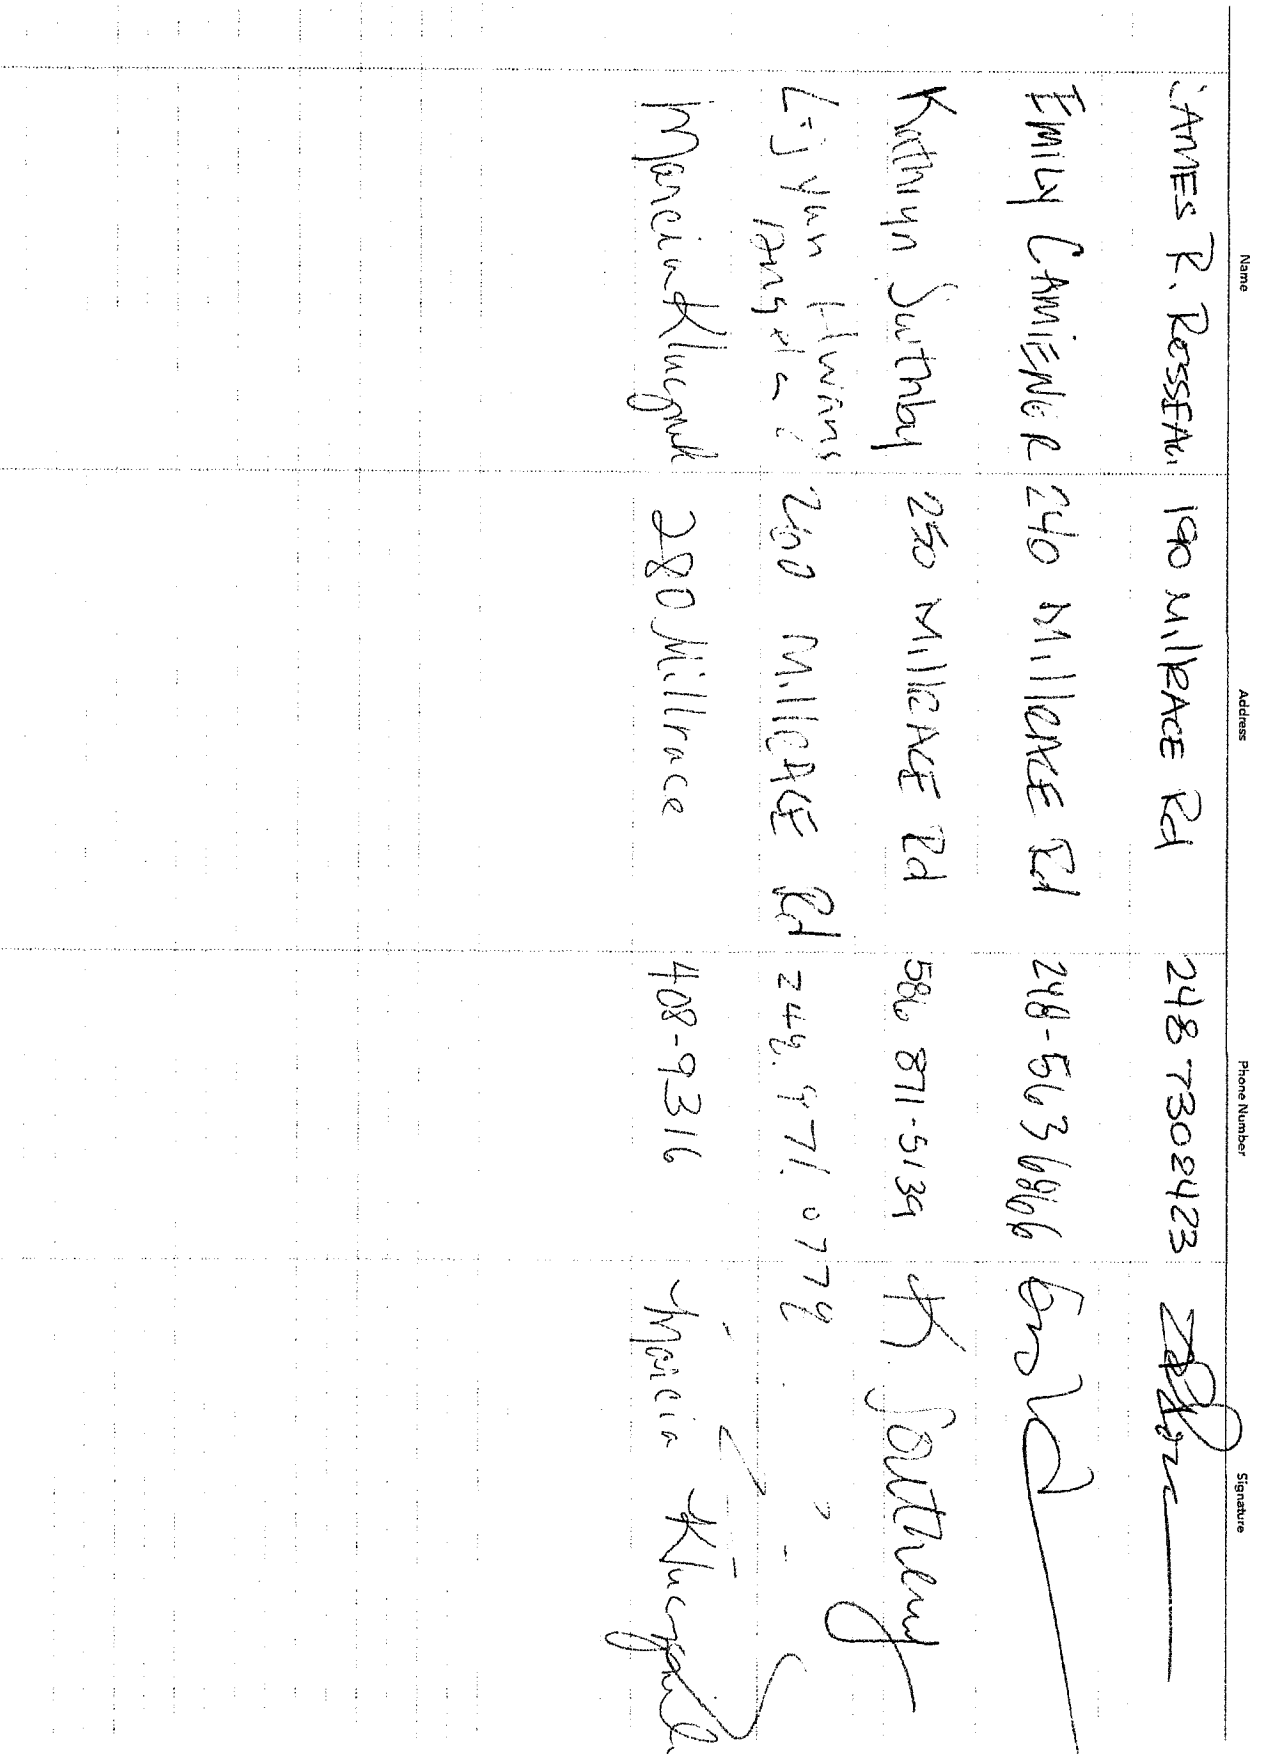 Name Address Phone Number Signature
JAMES R. ROSSEAU 190 MillRACE Rd 248 7302423
EMILY CAMIENER 240 MillRACE Rd 248-563 6866
Kathryn Southby 250 MillRACE Rd 586 871-5139 K. Southby
Li-Yun Hwang 260 MillRACE Rd 248.971.0779
Angela
Marcia 280 Millrace 408-9316 Marcia